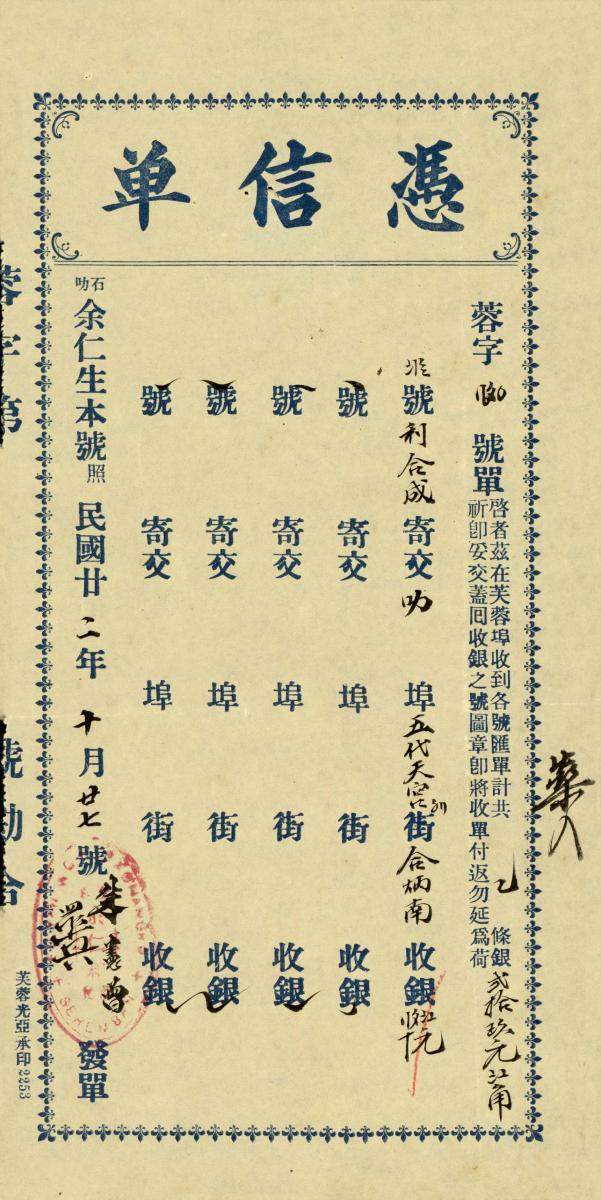 憑信单
蓉字 號單
啓者茲在芙蓉埠收到各號匯單計共 條銀貳拾玖元 角
祈卽妥交蓋囘收銀之號圖章卽將收單付返勿延爲荷
號利合成寄交叻埠五代天宫 街合炳南收銀 元
號 寄交 埠 街 收銀
號 寄交 埠 街 收銀
號 寄交 埠 街 收銀
號 寄交 埠 街 收銀
石叻余仁生本號照 民國廿二年十月廿七號 發單
芙蓉光亞承印2253
蓉字第 號勘合
SEREMBAN